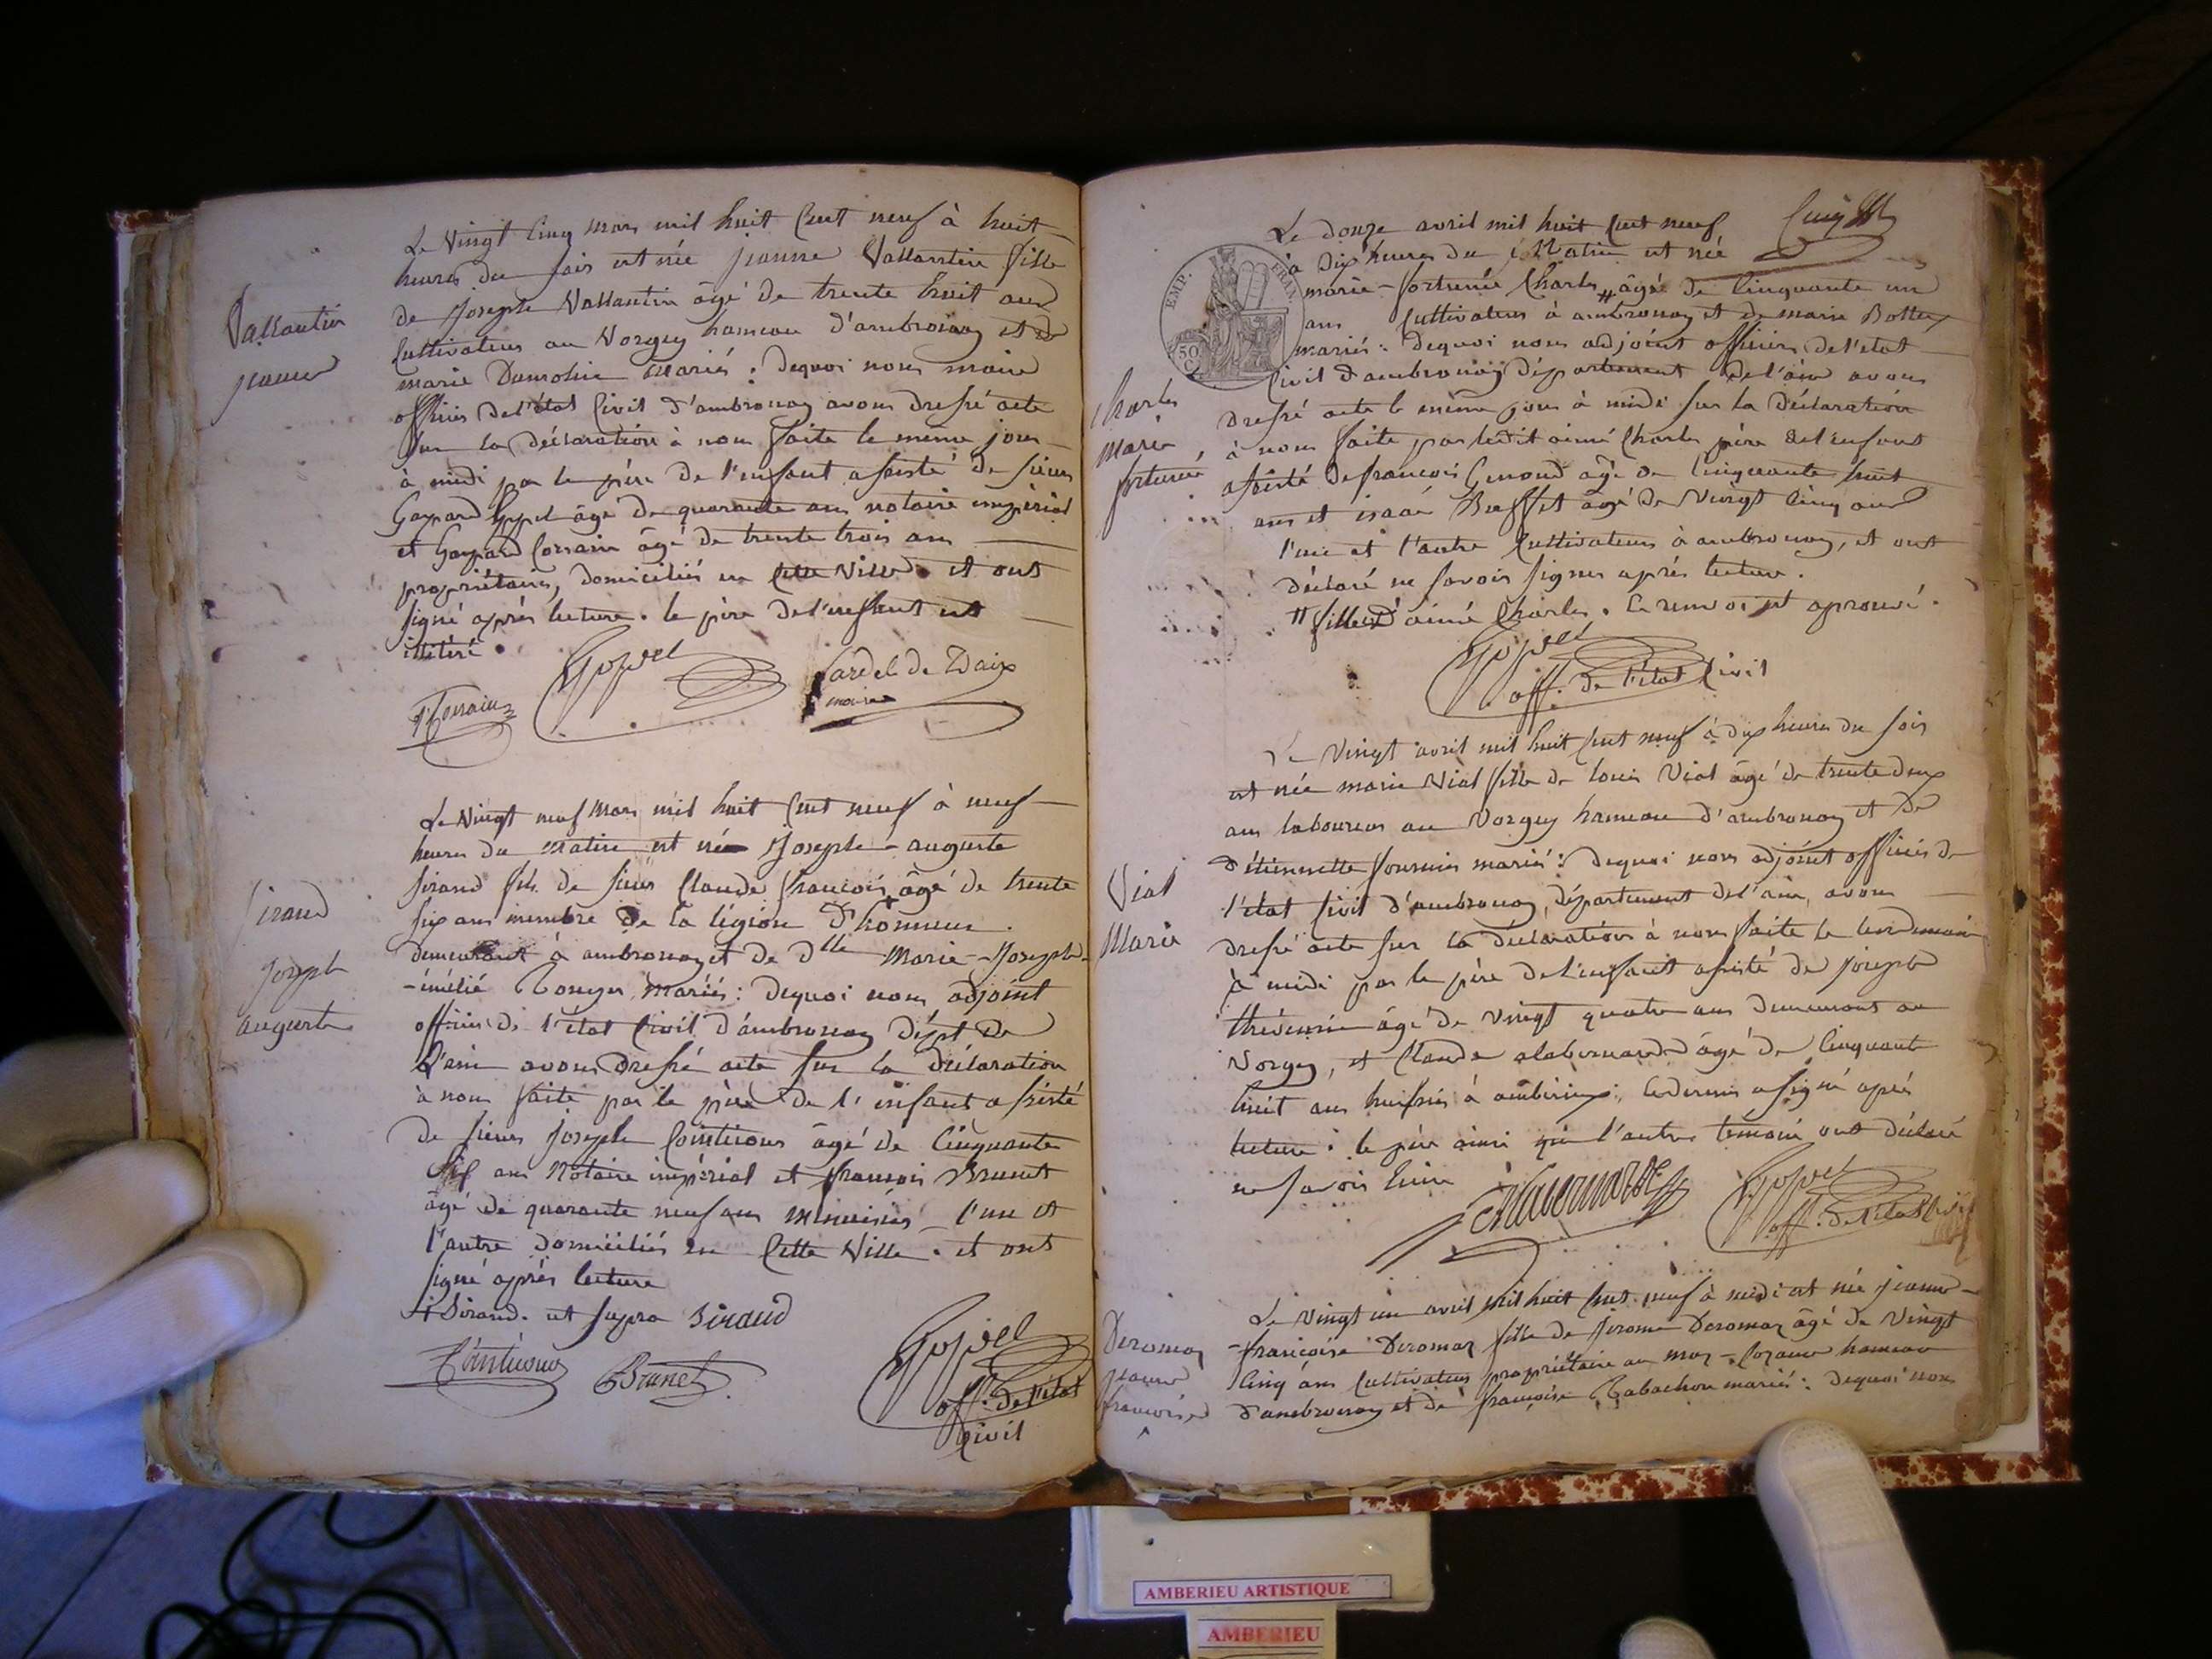 Vallantin
jeanne
Le vingt cinq mars mil huit cent neuf à huit
heures du soir est née jeanne Vallantin fille
de Joseph Vallantin âgé de trente huit ans
cultivateur au Vorgey hameau d'ambronay et de
marie Dumolin mariés : dequoi nous maire
officier de l'état Civil d'ambronay avons dressé acte
sur la déclaration à nous faite le meme jour
à midi par le père de l'enfant assisté de sieurs
Gaspard Goppel âgé de quarante ans notaire impérial
et Gaspard Corrain âgé de trente trois ans
propriétaires, domiciliés en cette Ville et ont
signé après lecture. le père de l'enfant est
illitéré.
Corrain
Goppel
Sardel de Daix
maire
Sirand
Joseph
auguste
Le Vingt neuf Mars mil huit cent neuf à neuf
heures du matin est né Joseph-auguste
Sirand fils de sieur Claude françois + âgé de trente
six ans membre de la légion d'honneur.
demeurant à ambronay et de dlle Marie-Joseph-
-émélie mariés : dequoi nous adjoint
officier de l'état Civil d'ambronay dépt de
L'ain avons dressé acte sur la déclaration
à nous faite par le père de l'enfant assisté
de sieurs Joseph Cointicour âgé de cinquante
six ans Notaire impérial et françois Brunet
âgé de quarante neuf ans menuisier l'un et
l'autre domiciliés en cette Ville. et ont
signé après lecture
+ Sirand. ut supra Siraud
Cointicour
Brunet
Goppel
off. de l'état
Civil
EMP. FRAN.
50
C.
Charles
Marie
fortunée
Le douze avril mil huit cent neuf
à dix heures du Matin est née
marie-fortunée Charles # âgé de cinquante un
ans cultivateur à ambronay et de marie Bottex
mariés : dequoi nous adjoint officier de l'etat
Civil d'ambronay département de l'ain avons
dressé acte le même jour à midi sur la déclaration
à nous faite par ledit aimé Charles père de l'enfant
assisté de françois Genoud âgé de cinquante huit
ans et isaac Buffet âgé de Vingt cinq ans
l'un et l'autre cultivateurs à ambronay, et ont
déclaré ne savoir signer après lecture.
# fille d'aimé Charles. le renvoi est aprouvé.
Goppel
off. de l'état Civil
Vial
Marie
Le Vingt avril mil huit cent neuf à dix heures du soir
est née marie Vial fille de louis Vial âgé de trente deux
ans laboureur au Vorgey hameau d'ambronay et de
d'étiennette fournier mariés : dequoi nous adjoint officier de
l'état civil d'ambronay, département de l'ain, avons
dressé acte sur la déclaration à nous faite le lendemain
à midi par le père de l'enfant assisté de joseph
thévenin âgé de vingt quatre ans demeurant au
Vorgey, et Claude alabernarde âgé de cinquante
huit ans huissier à ambérieux ; le dernier a signé après
lecture : le père ainsi que l'autre témoin ont déclaré
ne savoir écrire
Alabernarde
Goppel
off. de l'état Civil
Deromaz
jeanne
françoise
Le vingt un avril mil huit cent neuf à midi est née jeanne-
-françoise Deromaz fille de Jerome Deromaz âgé de Vingt
cinq ans cultivateur propriétaire au hameau
d'ambronay et de françoise Tabachou mariés : dequoi nous
AMBERIEU ARTISTIQUE
AMBERIEU